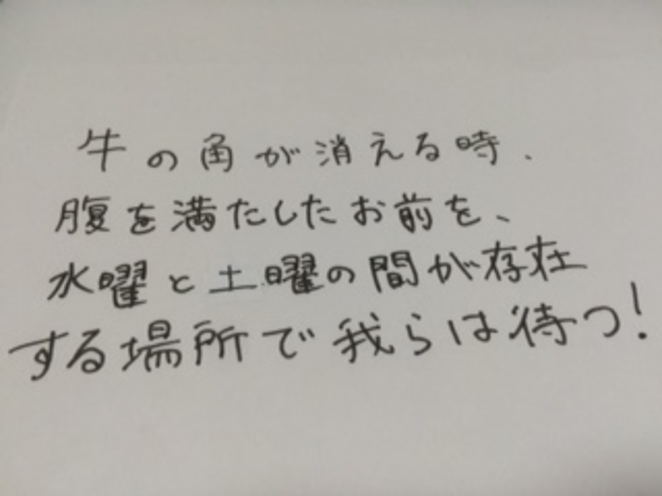 牛の角が消える時、
腹を満たしたお前を、
水曜と土曜の間が存在
する場所で我らは待つ!